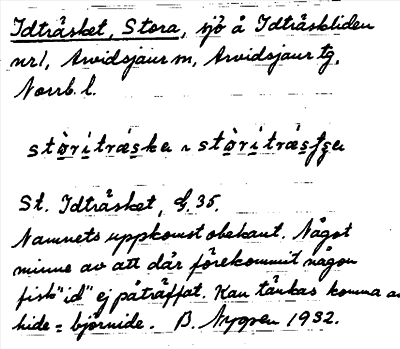 Idträsket, Stora, sjö å Idträskliden
nr 1, Arvidsjaur sn, Arvidsjaur tg,
Norrb. l.
stòrítráska ~ stòrítráska
St. Idträsket, G. 35.
Namnets uppkomst obekant. Något
minne av att där förekommit någon
fisk "id" ej påträffat. Kan tänkas komma av
hide = björnide. B. Nygren 1932.